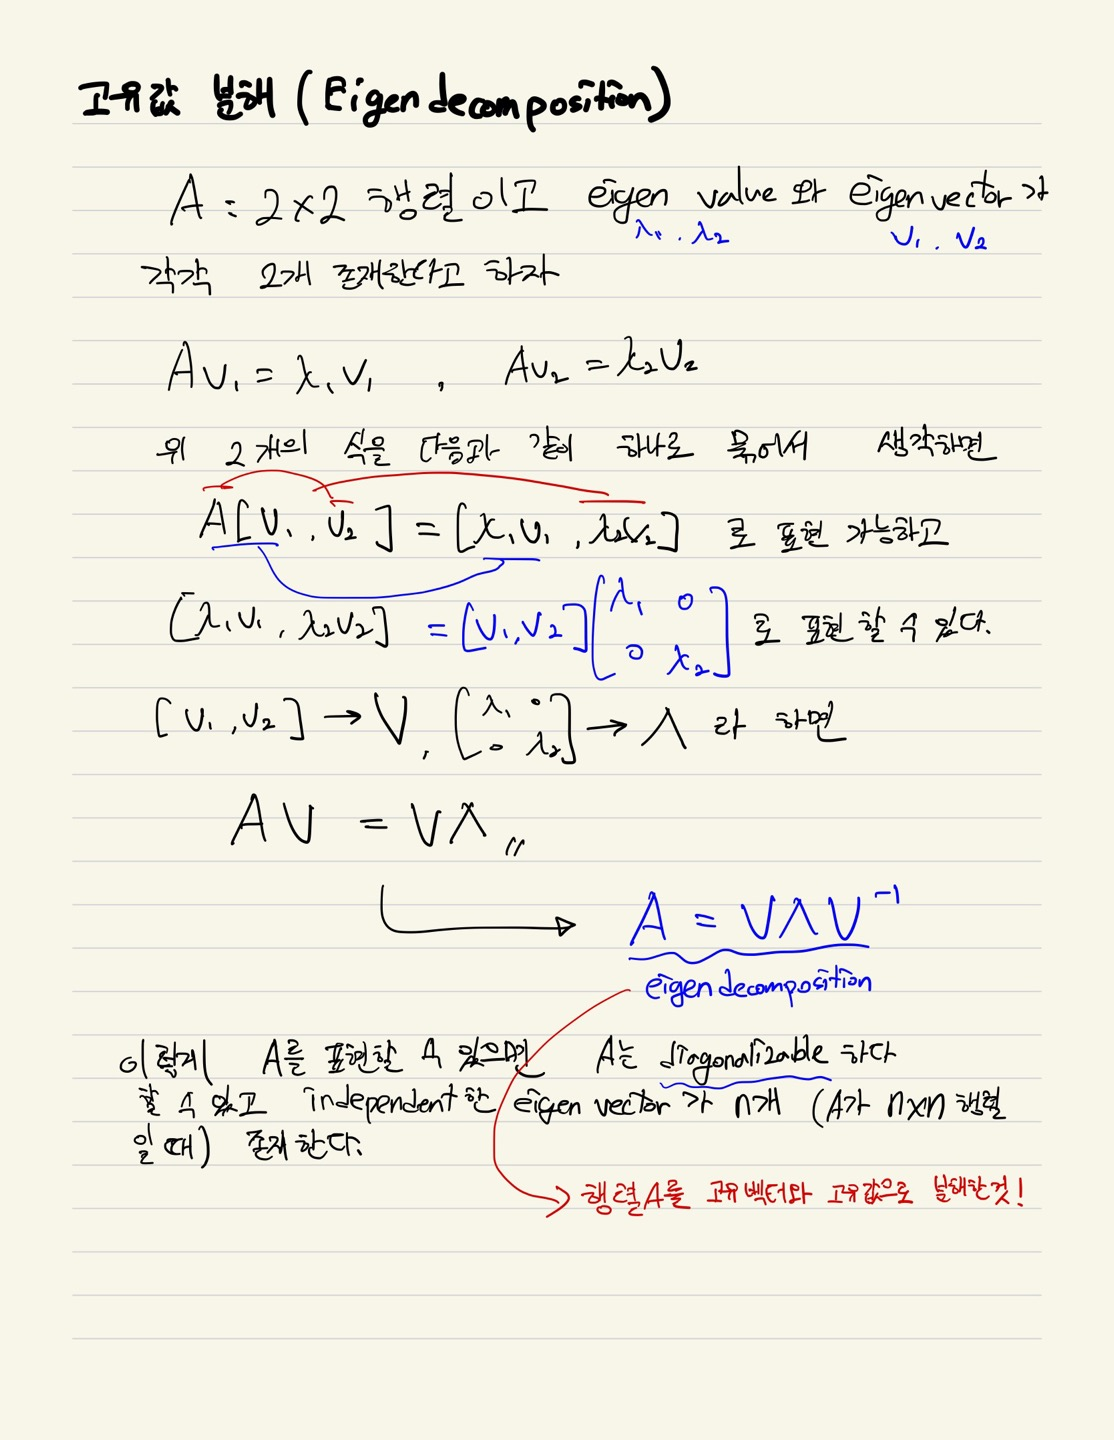 고유값 분해 (Eigen decomposition)
A : 2×2 행렬이고 eigen value 와 eigen vector 가
λ₁, λ₂ v₁, v₂
각각 2개 존재한다고 하자
Av₁ = λ₁v₁ , Av₂ = λ₂v₂
위 2개의 식을 다음과 같이 하나로 묶어서 생각하면
A[v₁, v₂] = [λ₁v₁, λ₂v₂] 로 표현 가능하고
[λ₁v₁, λ₂v₂] = [v₁, v₂] [λ₁ 0 0 λ₂] 로 표현 할 수 있다.
[v₁, v₂] → V, [λ₁ 0 0 λ₂] → Λ 라 하면
AV = VΛ 〃
A = VΛV⁻¹
eigen decomposition
이렇게 A를 표현할 수 있으면 A는 diagonalizable 하다
할 수 있고 independent한 eigen vector 가 n개 (A가 n×n 행렬
일 때) 존재한다.
행렬A를 고유벡터와 고유값으로 분해한것!